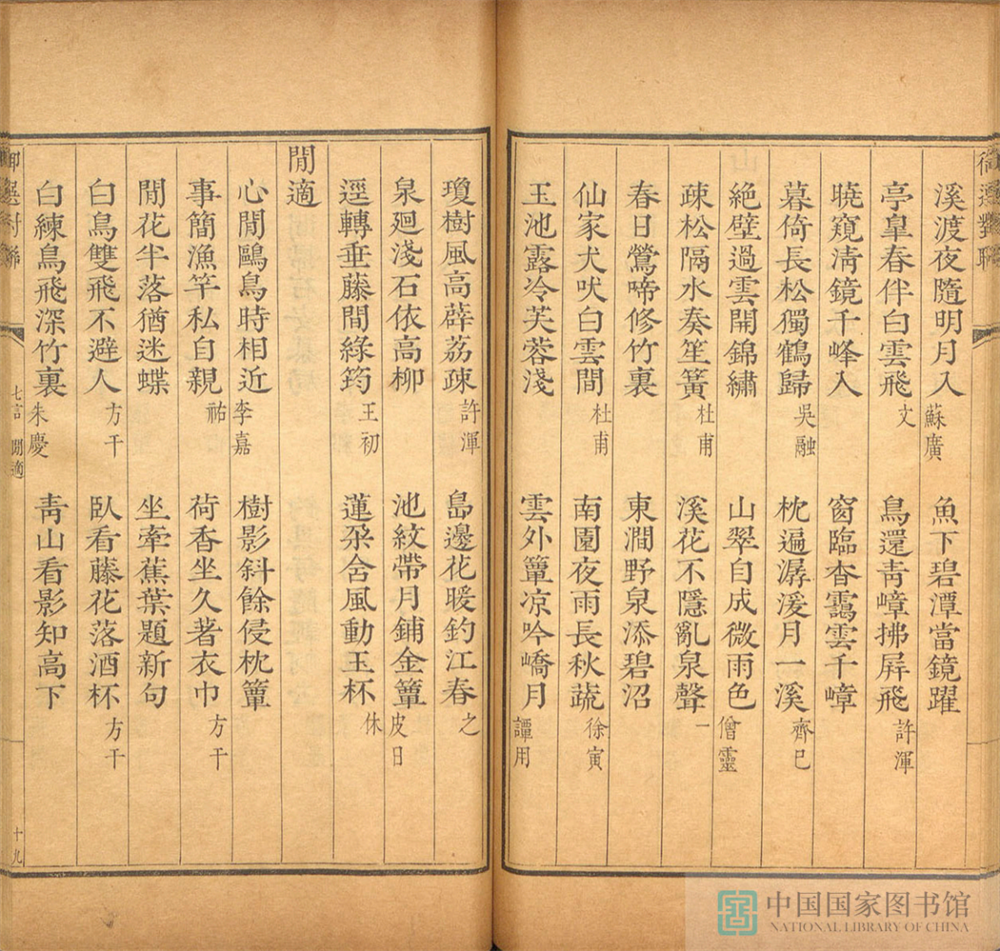 御選對聯
溪渡夜隨明月入 蘇廣 魚下碧潭當鏡躍
亭皐春伴白雲飛 文 鳥還青嶂拂屏飛 許渾
曉窺清鏡千峰入 窗臨杳靄雲千嶂
暮倚長松獨鶴歸 吳融 枕遍潺湲月一溪 齊已
絕壁過雲開錦繡 山翠自成微雨色 僧靈
疎松隔水奏笙簧 杜甫 溪花不隱亂泉聲 一
春日鶯啼修竹裏 東澗野泉添碧沼
仙家犬吠白雲間 杜甫 南園夜雨長秋蔬 徐寅
玉池露冷芙蓉淺 雲外簟凉吟嶠月 譚用
瓊樹風高薜荔疎 許渾 島邊花暖釣江春 之
泉廻淺石依高柳 池紋帶月鋪金簟 皮日
逕轉垂藤間綠筠 王初 蓮朶含風動玉杯 休
閒適
心閒鷗鳥時相近 李嘉 樹影斜餘侵枕簟
事簡漁竿私自親 祐 荷香坐久著衣巾 方干
閒花半落猶迷蝶 坐牽蕉葉題新句
白鳥雙飛不避人 方干 臥看藤花落酒杯 方干
白練鳥飛深竹裏 朱慶 青山看影知高下
御選對聯 七言 閒適 十九
中国国家图书馆
NATIONAL LIBRARY OF CHINA